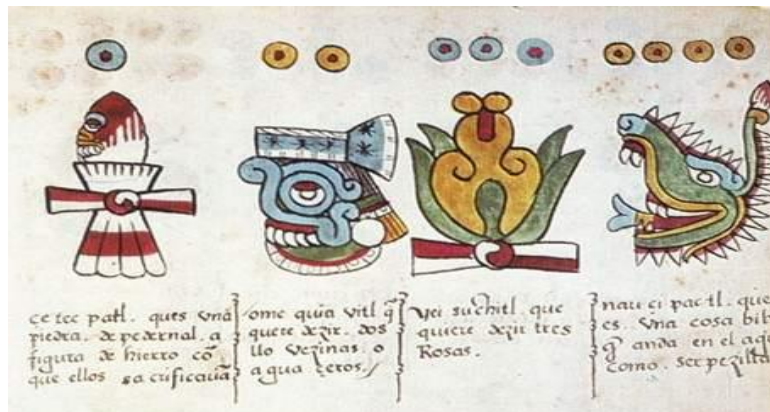 çe tec patl. ques vnā
piedra. de pedernal. a
figura de hierro cō
que ellos sacrificauā
ome quia vitl q̄
quere dezir. dos
llo vezinas. o
agua çeros.
yei suchitl. que
quiere dezir tres
Rosas.
naui çi pactl. que
es. vna cosa bib
q̄ anda en el agu
como. serpezilla